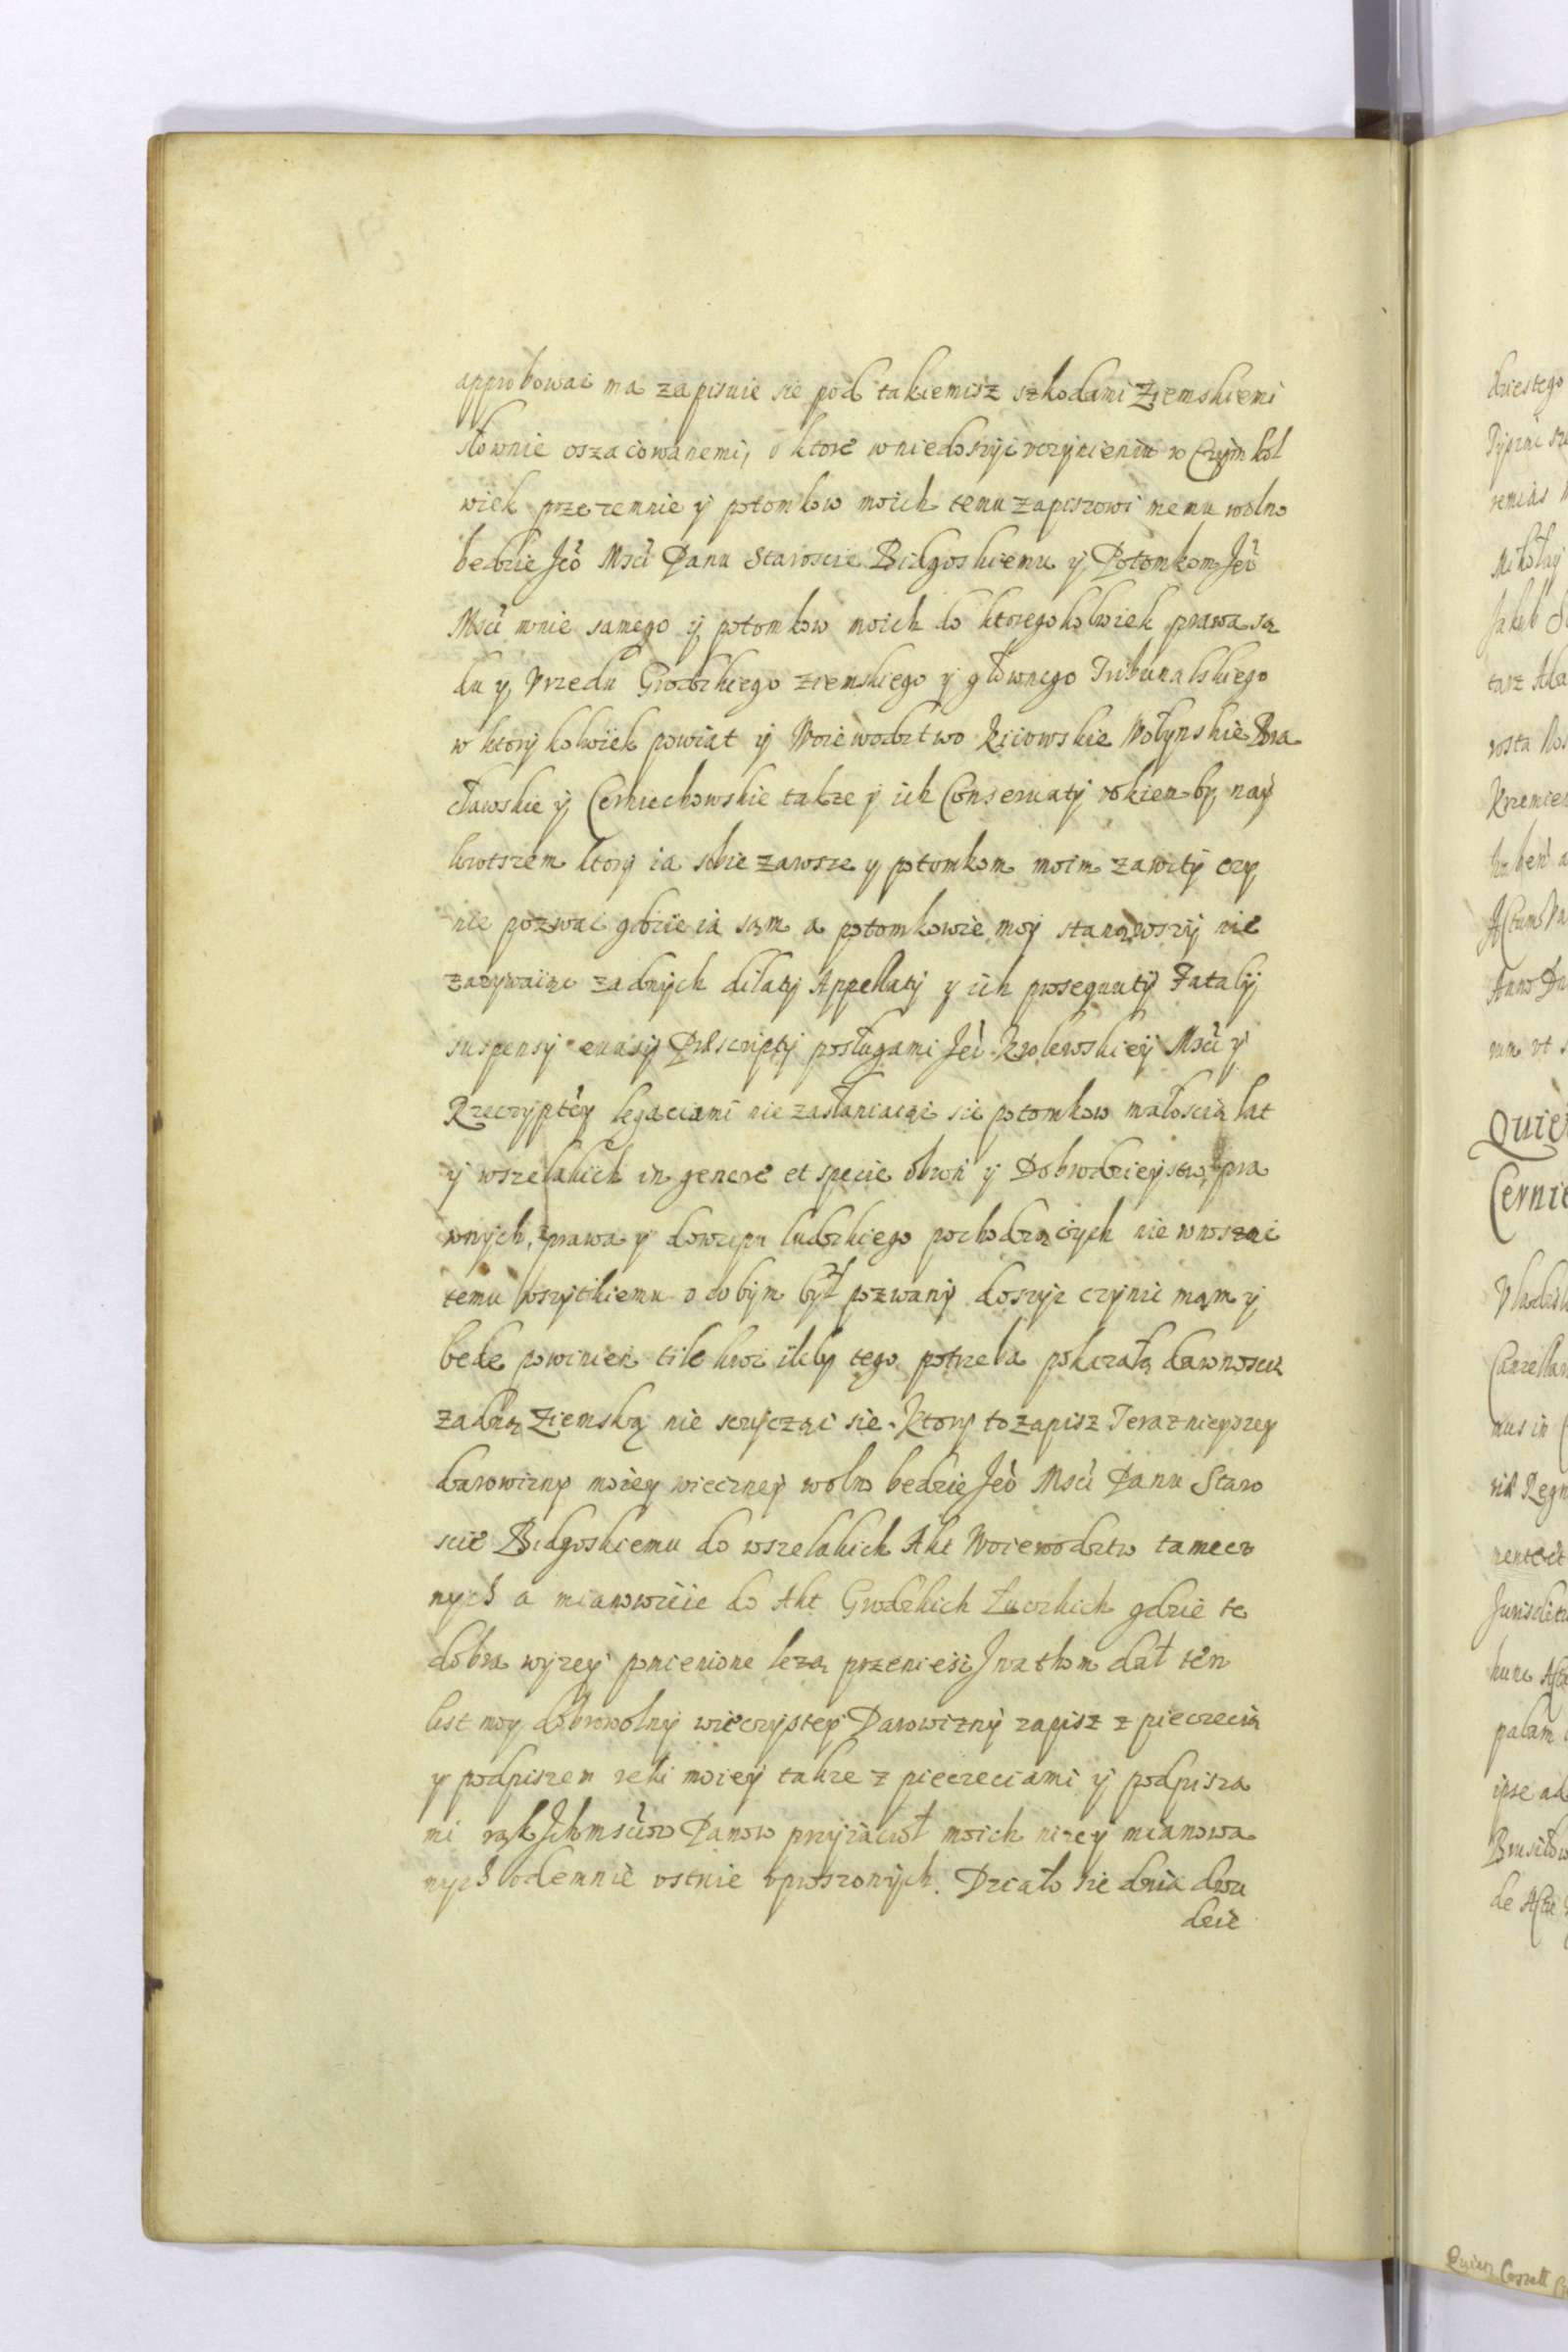 approbowac ma zapisuie sie pod takiemisz szkodami Ziemskiemi
słownie oszacowanemi, o ktore w niedosyc vczynieniu w Czymkol
wiek przezemnie y potomkow moich temu zapisowi memu wolno
bedzie Jeo Msci Panu Staroscie Bidgoskiemu y Potomkom Jeo
Msci mnie samego y potomkow moich do ktoregokolwiek prawa są
du y Vrzedu Grodzkiego ziemskiego y głownego Tribunalskiego
w ktorykolwiek powiat y Woiewodztwo Kiiowskie Wołynskie Bra
cławskie y Czerniechowskie takze y ich Conseruaty rokiem by nay
krotszem ktory ia sobie zawsze y potomkom moim zawity czy
nie pozwac gdzie ia sam a potomkowie moy stanąwszy nie
zazywaiąc zadnych dilaty Appellaty y ich prosequuty Fataly
suspensy euasy Præscripty posługami Jeo Krolewskiey Msci y
Rzeczyptey legaciami nie zasłaniaiąc sie potomkow małoscią lat
y wszelakich in genere et specie obron y Dobrodzieystw pra
wnych, z prawa y dowcipu ludzkiego pochodzących nie wnosząc
temu wszytkiemu o cobym był pozwany dosyc czynic mam y
bede powinien tile kroc ileby tego potrzeba pokazała dawnoscią
zadną Ziemską nie sczycząc sie. Ktory to zapisz Terazniejszey
darowizny moiey wieczney wolno bedzie Jeo Msci Panu Staro
scie Bidgoskiemu do wszelakich Akt Woiewodztw tamecz
nych a mianowicie do Akt Grodzkich Łuczkich gdzie te
dobra wyzey pomienione lezą przeniesc J na tom dał ten
list moy dobrowolny wieczystey Darowizny zapisz z pieczecią
y podpiszem reki moiey takze z pieczeciami y podpisza
mi rąk Jchmsciow Panow przyiacioł moich nizey mianowa
nych odemnie ustnie uproszonych. Działo sie dnia dwu
dzie